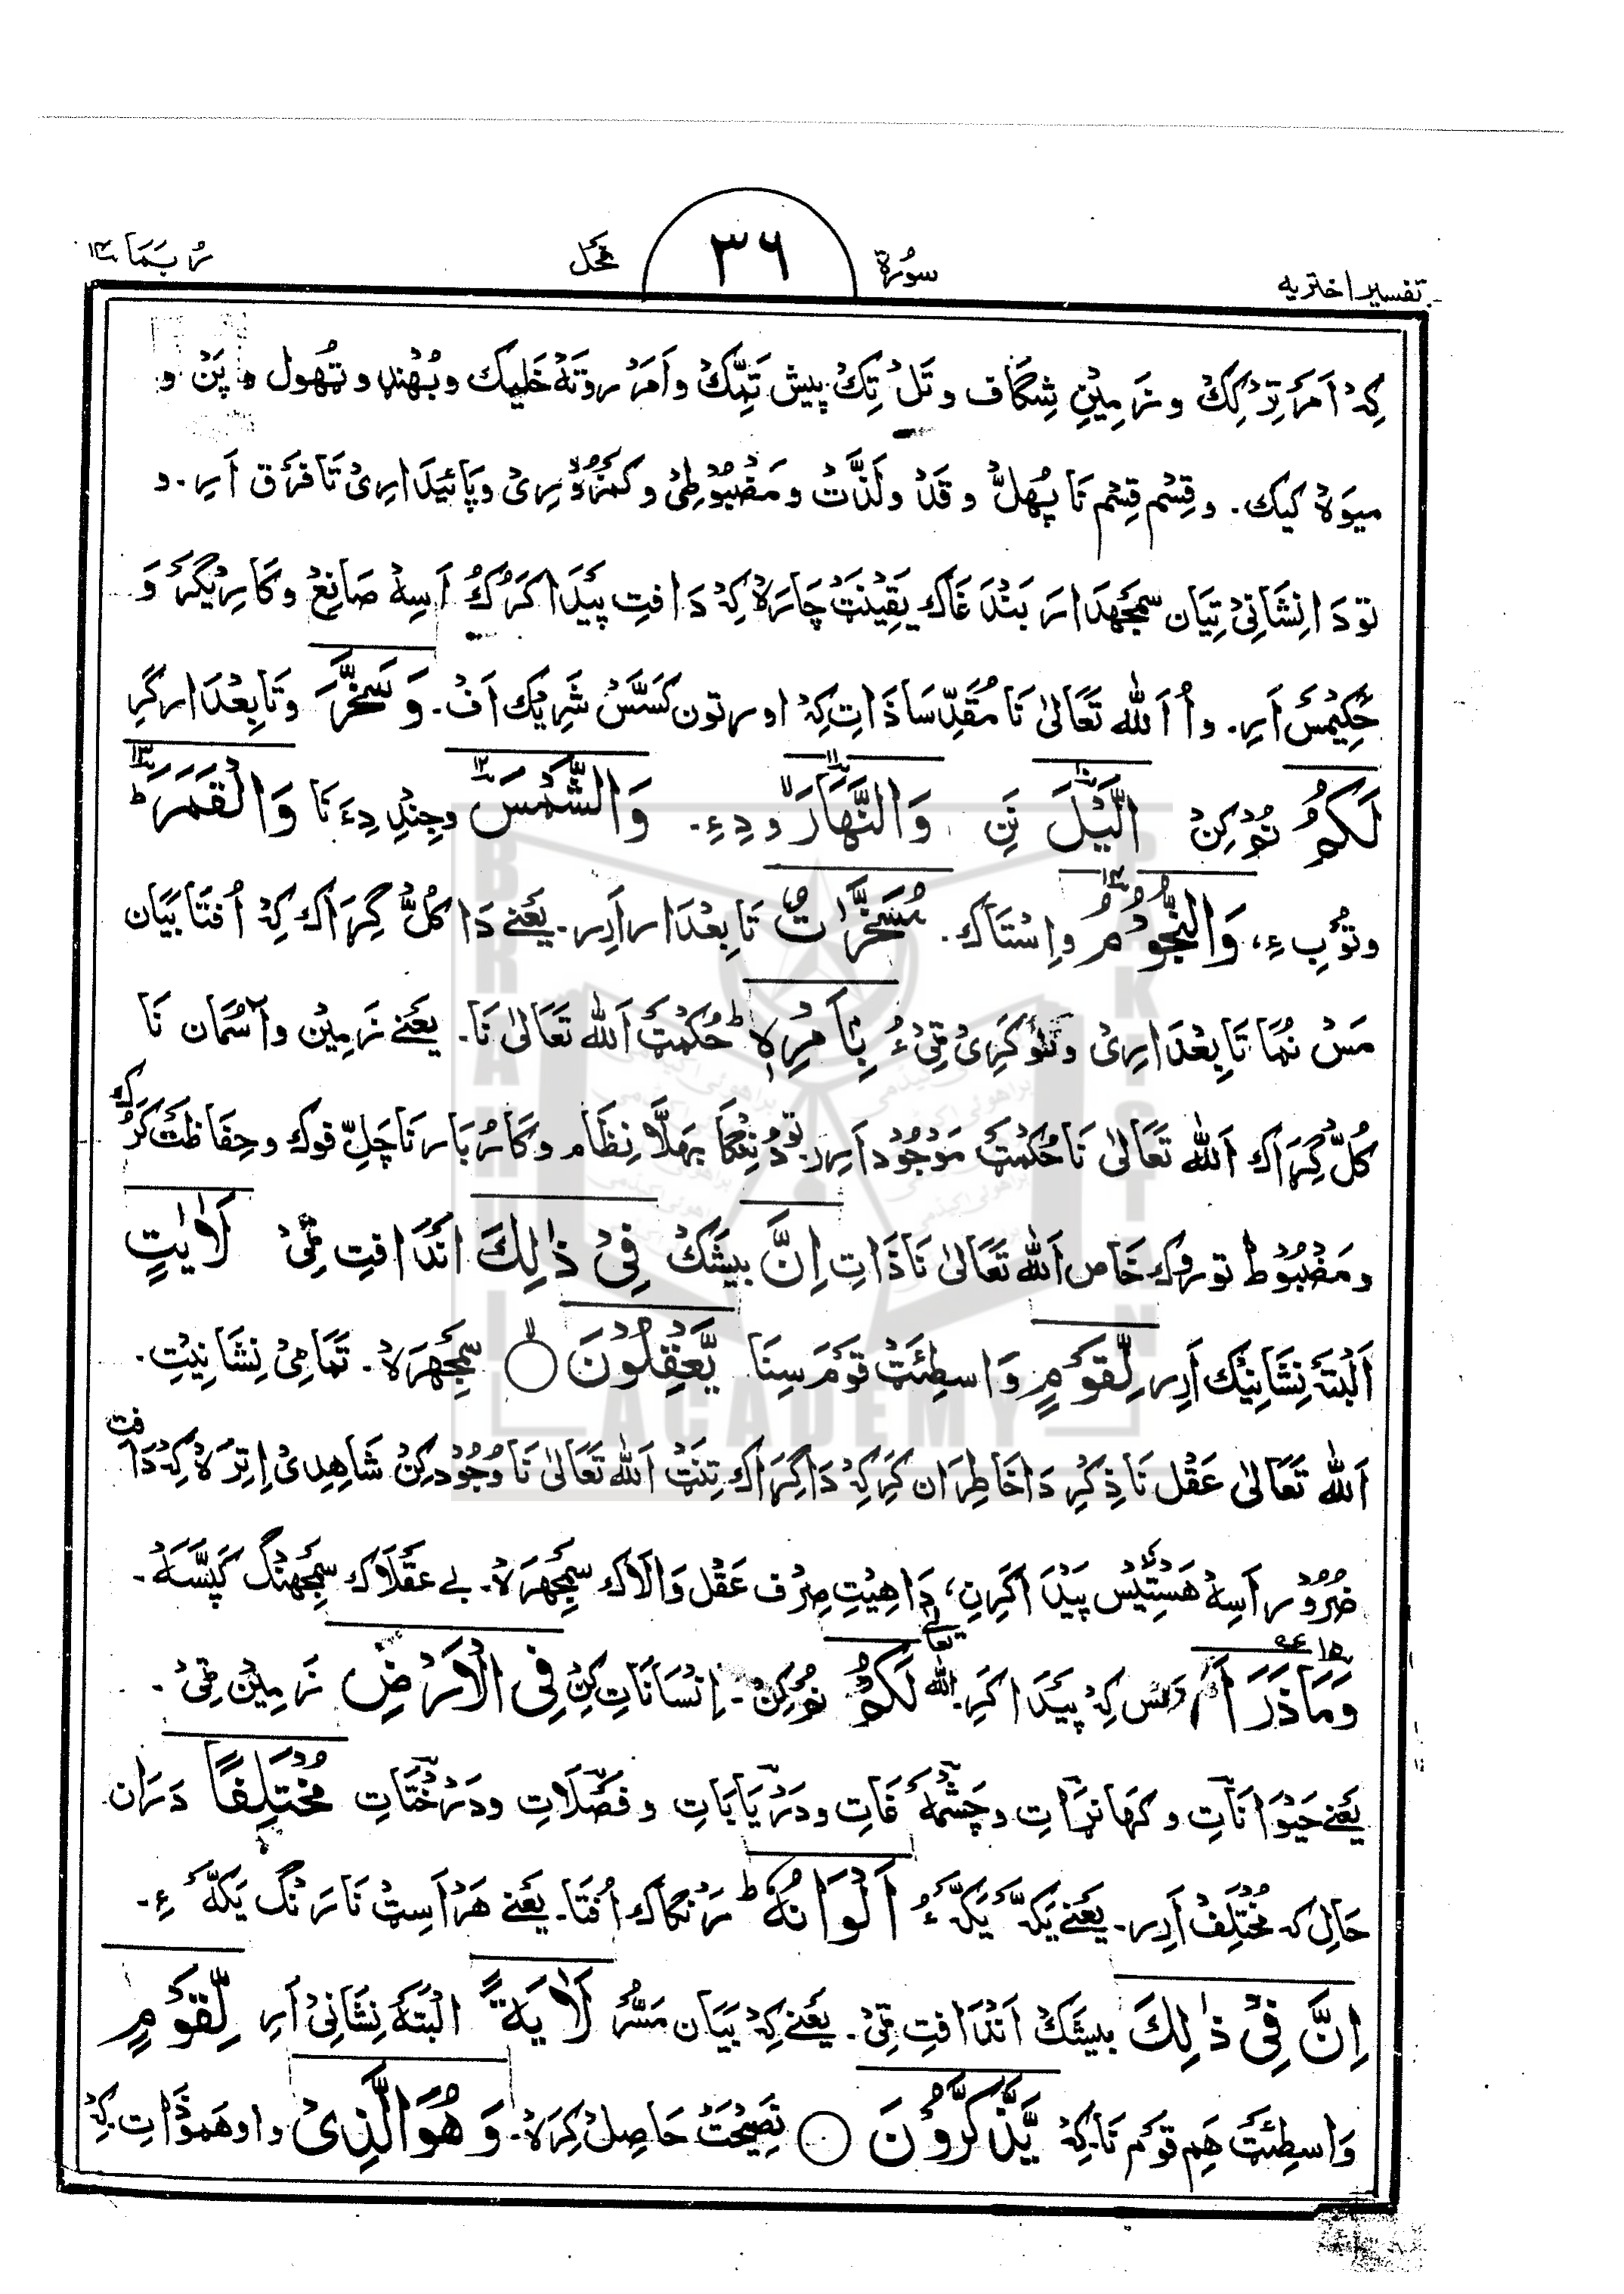 تفسیر اختریه
سُورة
۳۶
نحل
رُبَمَا ۱۴
کِہ اَمَرَ تِرْکِك وزَمِیْنِ شِگاف وتَلْ تِكْ پیش تَمِّكْ واَمَرْ روتَهْ خَلِیك وبُهُنْد وتُھول و پَنْ و
میوَہ کیك۔ وقِسْم قِسْم نَا پُهَلّْ وقَدْ ولَذَّتْ ومَضْبُوْطِیْ وکَمْزُوْرِیْ وپَائِیْدَارِیْ تَا فَرَق اَرِ۔ و
تو دَا نِشَانِیْ تِیَان سَمَجْھدَار بَنْدَغَاك یَقِیْنَتْ چَارَہْ کِہْ دَافتِ پَیْدَا کَرُكْ اَسِہْ صَانِعْ وکَارِیْگَرْ وَ
حَکِیْمَس اَرِ۔ واُ اَللّٰه تَعَالٰی نَا مُقَدَّسَا ذَاتِ کِہْ اورتون کَسَّسْ شَرِیْك اَفْ۔ وَسَخَّرَ وتَابِعْدَار کَرِ
لَکُمُ نُمْ کِنْ الَّیْلَ نَنِ وَالنَّهَارَ و دِءِ۔ وَالشَّمْسَ وجِنْدِ دِءَ نَا وَالْقَمَرَ ؕ
وتُوْبِ ءِ، وَالنُّجُوْمُ واِسْتَاك۔ مُسَخَّرٰتٌ تَابِعْدَار اَرِر۔ یَعْنِے دَا کُلّْ گِرَاك کِہْ اُفتَا بَیَان
مَسْ نُمَا تَابِعْدَارِیْ ونَوْکَرِیْ ٹِیْ ءُ بِاَمْرِہٖ ؕ حُکْمَتْ اَللّٰه تَعَالٰی نَا۔ یَعْنِے زَمِیْن وآسْمَان نَا
کُلّْ گِرَاك اَللّٰه تَعَالٰی نَا حُکْمَتْ مَوْجُوْد اَرِر۔ تو دُنْیَا بَهلَّا نِظَام وکَارُبَار نَا چَلِّفوك وحِفَاظَتْ کَرُك
ومَضْبُوْط توروك خَاص اَللّٰه تَعَالٰی نَا ذَاتِ اِنَّ بیشَكْ فِیْ ذٰلِكَ اَنْدَافتِ ٹِیْ لَاٰیٰتٍ
اَلْبَتَّه نِشَانِیْك اَرِر لِّقَوْمٍ وَاسطِئَتْ قَوْمَ سِنَا یَّعْقِلُوْنَ ۝ سَمَجْھِرَہْ۔ تَمَامِیْ نِشَانِیْتِ۔
اَللّٰه تَعَالٰی عَقْل نَا ذِکْرِ دَا خَاطِرَان کَرِ کِہْ دَا گِرَاك تِنَتْ اَللّٰه تَعَالٰی نَا وُجُوْدکِنْ شَاهِدِیْ اِتِرَہْ کِہْ دَافتِ
ضُرُوْر اَسِہْ هَسْتِیَسْ پَیْدَا کَرِنِ، دَا هِیْتِ صِرْف عَقْل وَالَاك سَمَجْھِرَہْ۔ بے عَقْلَاك سَمَجْھِنْگ کَپَسَّهْ۔
وَمَا ذَرَاَ کِہْ پَیْدَا کَرِ اللّٰه تعالٰے لَکُمْ نُمْ کِنْ۔ اِنْسَانَاتِ کِنْ فِی الْاَرْضِ زَمِیْن ٹِیْ۔
یَعْنِے حَیْوَانَاتِ وکَهَانِیَاتِ وچَشْمَه غَاتِ ودَرْیَابَاتِ وفَصْلَاتِ ودَرَخْتَاتِ مُخْتَلِفًا دَرَان
حَالِ کہ مُخْتَلِفْ اَرِر۔ یَعْنِے یَکَّہ یَکَّہ ءُ اَلْوَانُهٗ ؕ رَنْگاك اُفْتَا۔ یَعْنِے هَرْ اَسِٹ نَا رَنْگ یَکَّہ ءِ۔
اِنَّ فِیْ ذٰلِكَ بیشَكْ اَنْدَافتِ ٹِیْ۔ یَعْنِے کِہْ بَیَان مَسُّرْ لَاٰیَةً الْبَتَّه نِشَانِیْ اَرِ لِّقَوْمٍ
وَاسطِئَتْ هِم قَوْم نَا۔ کِہْ یَّذَّکَّرُوْنَ ۝ نَصِیْحَتْ حَاصِلْ کِرَہْ۔ وَهُوَ الَّذِیْ واوهَموْ ذَاتِ کِہْ